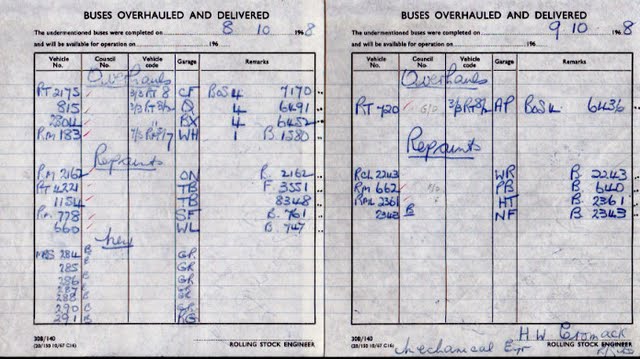 BUSES OVERHAULED AND DELIVERED
The undermentioned buses were completed on 8 10 1968
and will be available for operation on 196
Vehicle No. Council No. Vehicle code Garage Remarks
Overhauls
RT 2175 3/3 RT 8 CF BOS 4 7170
815 3/3 RT 8/2 Q 4 6491
2804 " BX 4 6452
RM 183 WH 1 B. 1580
Repaints
RM 2162 ON R. 2162
RT 4221 TB F. 3551
1154 TB 8348
RM 778 SF B. 761
660 WL B. 747
New
MBS 284 B GR
285 GR
286 B GR
287 GR
288 B GR
290 C GR
291 B RG
308/140
ROLLING STOCK ENGINEER
BUSES OVERHAULED AND DELIVERED
The undermentioned buses were completed on 9 10 1968
and will be available for operation on 196
Vehicle No. Council No. Vehicle code Garage Remarks
Overhauls
RT 720 3/3 RT 8/2 AP BOS 4 6436
Repaints
RCL 2243 WR B. 2243
RM 662 PB B. 640
RML 2361 HT B. 2361
2343 B NF B. 2343
308/140
ROLLING STOCK ENGINEER
Mechanical Engr